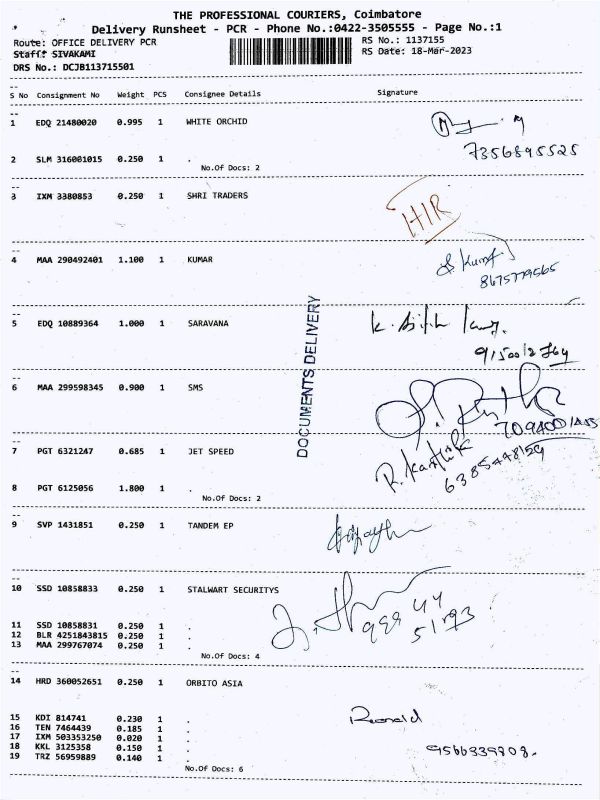 THE PROFESSIONAL COURIERS, Coimbatore
Delivery Runsheet - PCR - Phone No.:0422-3505555 - Page No.:1
Route: OFFICE DELIVERY PCR
RS No.: 1137155
Staff: SIVAKAMI
RS Date: 18-Mar-2023
DRS No.: DCJB113715501
S No Consignment No Weight PCS Consignee Details Signature
1 EDQ 21480020 0.995 1 WHITE ORCHID
7356895525
2 SLM 316001015 0.250 1 .
No.Of Docs: 2
3 IXM 3380853 0.250 1 SHRI TRADERS
H/R
4 MAA 290492401 1.100 1 KUMAR
8675779565
5 EDQ 10889364 1.000 1 SARAVANA
DOCUMENTS DELIVERY
6 MAA 299598345 0.900 1 SMS
7 PGT 6321247 0.685 1 JET SPEED
R. Karthik
8 PGT 6125056 1.800 1 .
No.Of Docs: 2
9 SVP 1431851 0.250 1 TANDEM EP
10 SSD 10858833 0.250 1 STALWART SECURITYS
11 SSD 10858831 0.250 1 .
12 BLR 4251843815 0.250 1 .
13 MAA 299767074 0.250 1 .
No.Of Docs: 4
14 HRD 360052651 0.250 1 ORBITO ASIA
15 KDI 814741 0.230 1 .
Ronald
16 TEN 7464439 0.185 1 .
17 IXM 503353250 0.020 1 .
18 KKL 3125358 0.150 1 .
9566339808.
19 TRZ 56959889 0.140 1 .
No.Of Docs: 6